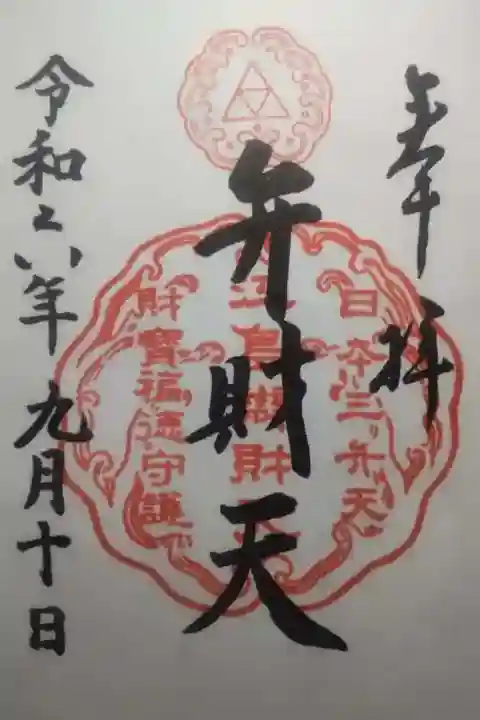 奉拝
日本三弁天
江島辨財天
弁財天
財寶福徳守護
令和六年九月十日